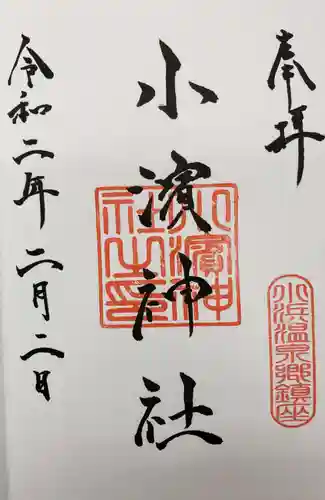 奉拝
小浜温泉郷鎮座
小濱神社
小濱神社之印
令和二年二月二日